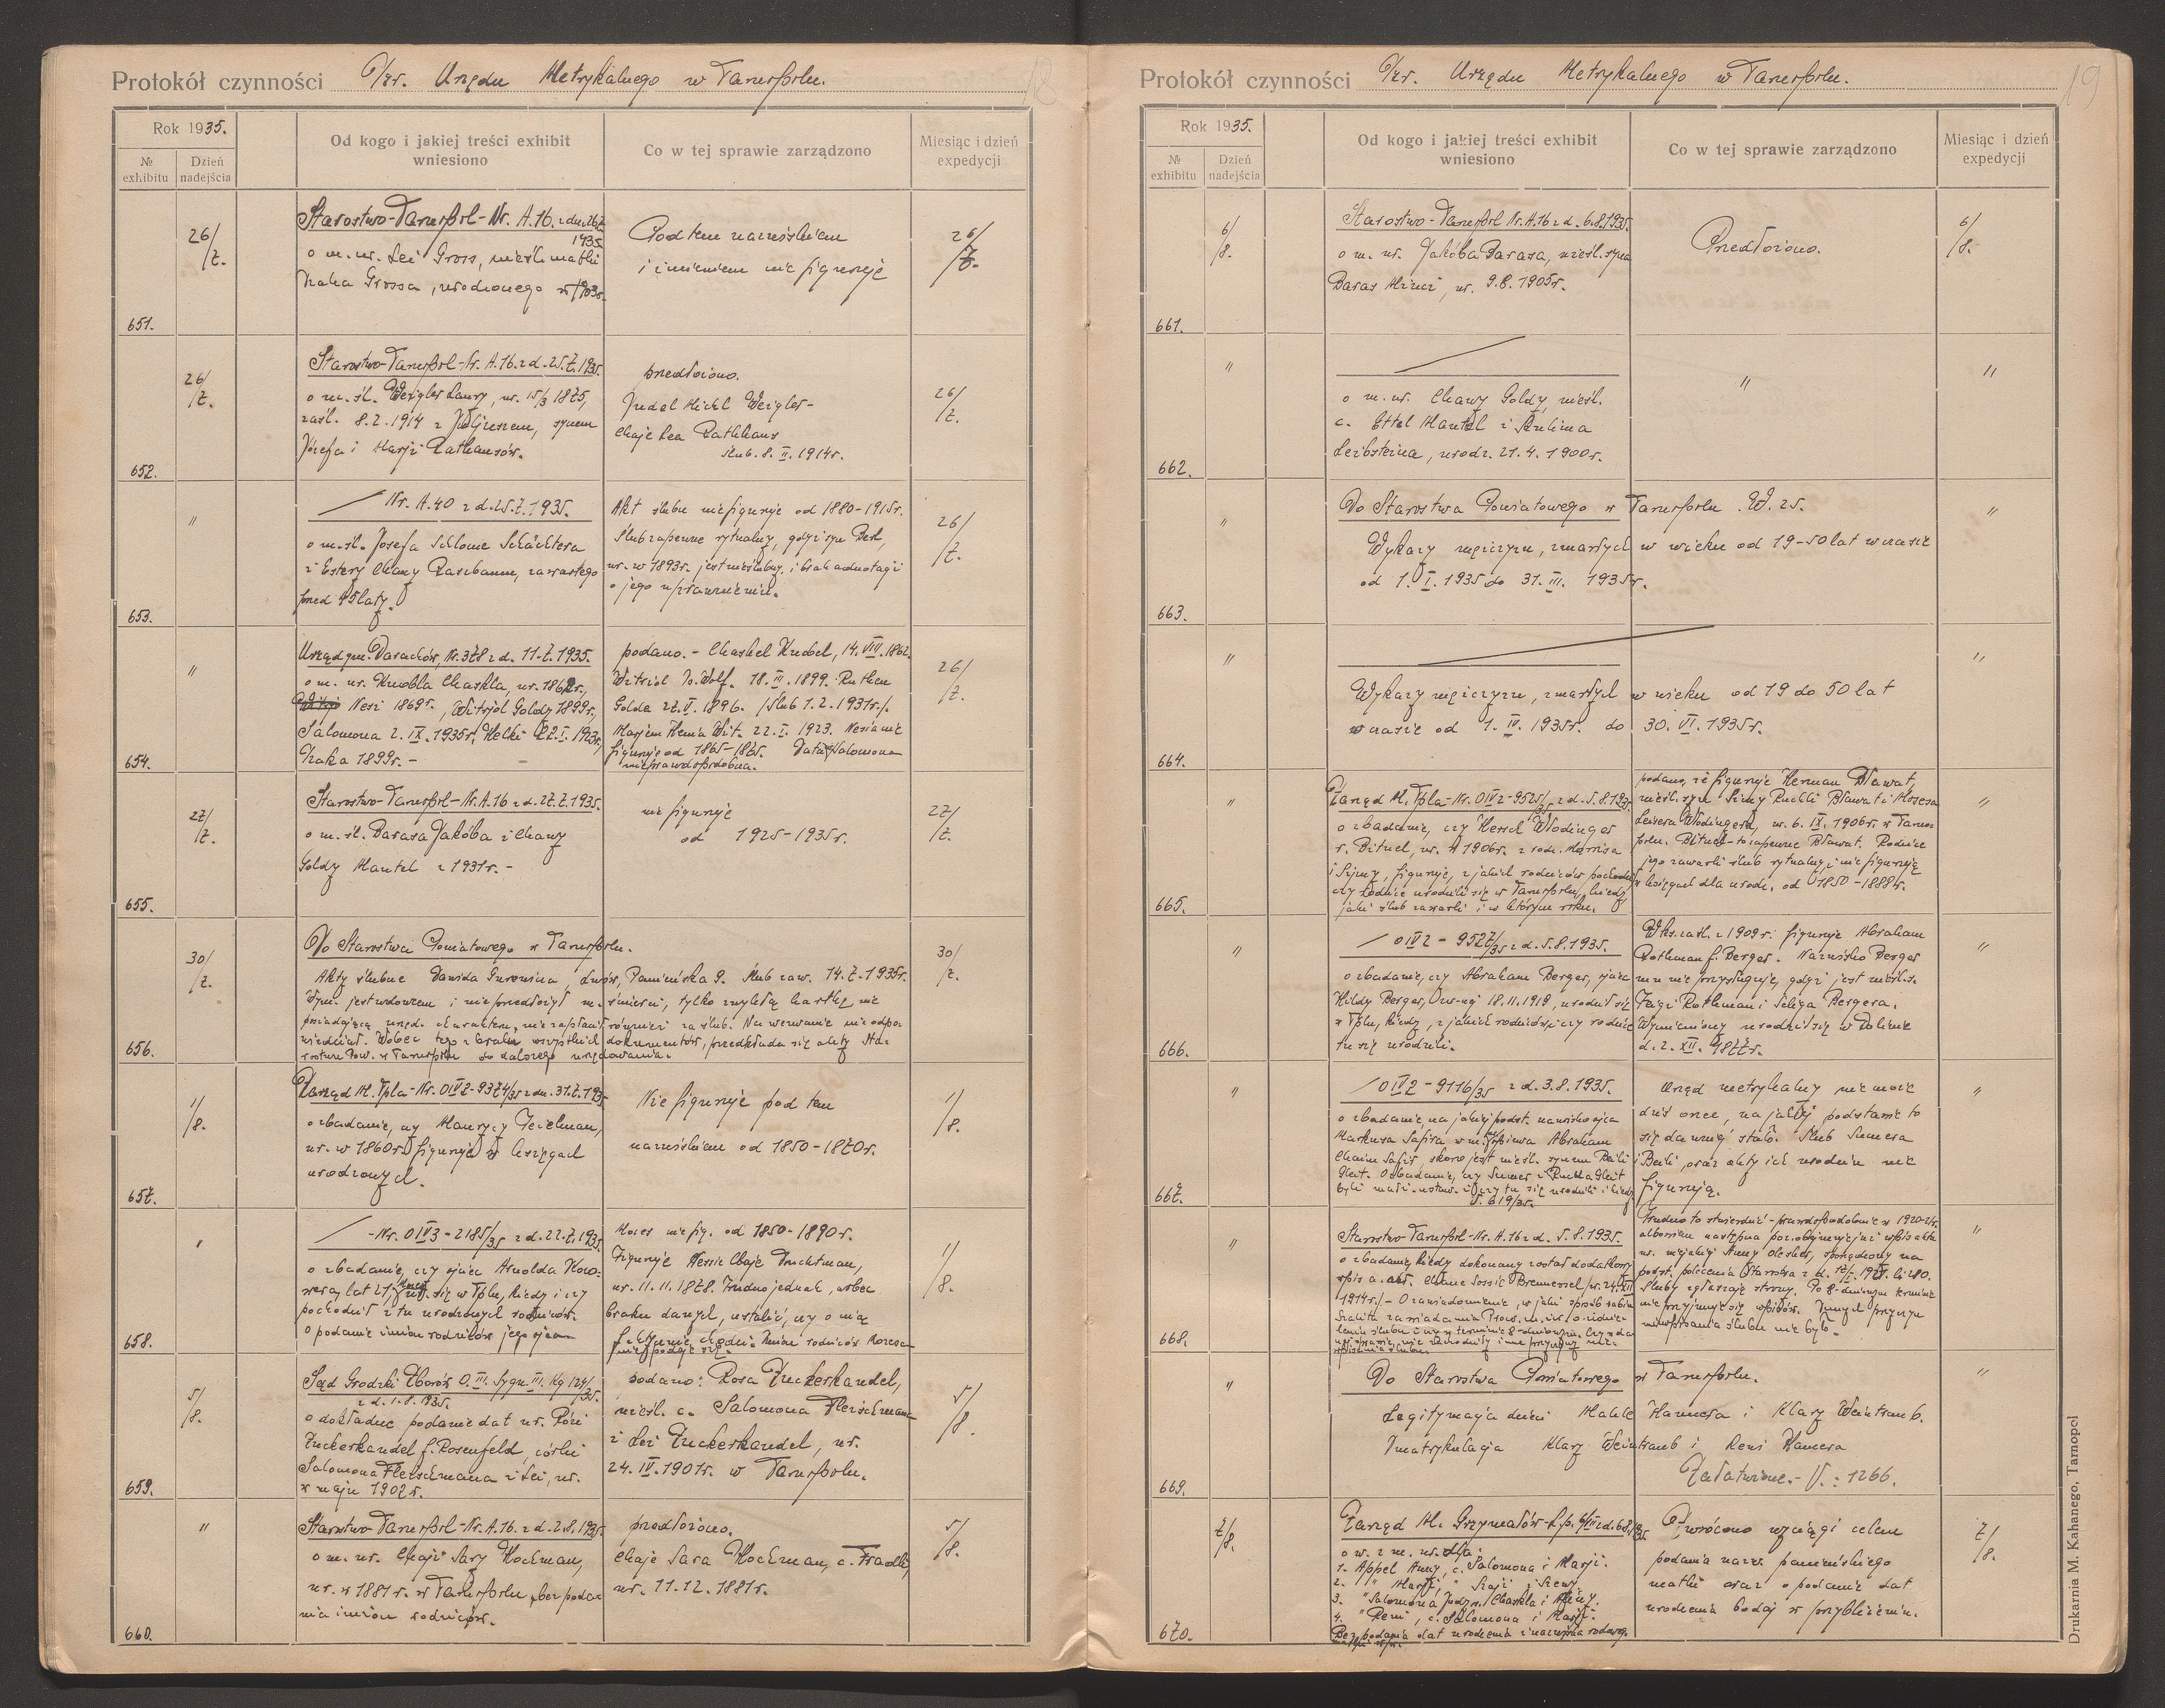 Protokół czynności Izr. Urzędu Metrykalnego w Tarnopolu.
Rok 1935.
№ exhibitu
Dzień nadejścia
Od kogo i jakiej treści exhibit wniesiono
Co w tej sprawie zarządzono
Miesiąc i dzień expedycji
651.
26/7.
Starostwo-Tarnopol-Nr. A.16. z dn. 26.7.
1935.
o m. ur. Lei Gross, nieśl. matki
Izaka Grossa, urodzonego w 1903r.
Pod tem nazwiskiem
i imieniem nie figuruje
26/7.
652.
26/7.
Starostwo-Tarnopol-Nr. A.16. z d. 25.7.1935.
o m. śl. Weigler Laury, ur. 15/3 1875,
zaśl. 8.2.1914 z synem
Józefa i Marji Rathausów.
przedłożono.
Judel Michl Weigler-
Chaje Lea Rathaus
ślub. 8. II. 1914r.
26/7.
653.
"
Nr. A.40 z d. 25.7.1935.
o m. śl. Josefa Schlome Schächtera
i Estery Chany Rasebaum, zawartego
przed 45 laty.
Akt ślubu nie figuruje od 1880-1915r.
Ślub zapewne rytualny, gdyż syn Berl,
ur. w 1893r. jest nieślubny, i brak adnotacji
o jego uprawnieniu.
26/7.
654.
"
Urząd gm. Darachów, Nr. 378 z d. 11.7.1935.
o m. ur. Knobla Chaskla, ur. 1862r.,
Nesi 1869r., Witriol Goldy 1899r.,
Salomona 2. IX. 1935r, Helki 22. I. 1923r,
Izaka 1899r. -
podano. - Chaskel Knobel, 14. VIII. 1862.
Witriol Iz. Wolf. 18. III. 1899. Ruthen
Golda 27. V. 1896. /ślub 1.2.1931r./.
Marjem Henia Wit. 22. I. 1923. Nesia nie
figuruje od 1865- Data Salomona
nieprawdopodobna.
26/7.
655.
27/7.
Starostwo-Tarnopol-Nr. A.16 z d. 27.7.1935.
o m. śl. Parasa Jakóba i Chany
Goldy Mantel z 1931r. -
nie figuruje
od 1925-1935r.
27/7.
656.
30/7.
Do Starostwa Powiatowego w Tarnopolu.
Akty ślubne Dawida Gurewicza, Lwów, Panieńska 9. Ślub zaw. 14.7.1935r.
Wym. jest wdowcem i nie przedłożył m. śmierci, tylko zwykłą kartkę nie
posiadającą urzęd. charakteru, nie zapłacił również za ślub. Na wezwanie nie odpo-
wiedział. Wobec tego i braku wszystkich dokumentów, przedkłada się akty Sta-
rostwu Pow. w Tarnopolu do dalszego urzędowania.
30/7.
657.
1/8.
Zarząd M. Tpla-Nr. OIV2-9374/35 z dn. 31.7.1935.
o zbadanie, czy Maurycy Teielman,
ur. w 1860r. figuruje w księgach
urodzonych.
Nie figuruje pod tem
nazwiskiem od 1850-1870r.
1/8.
658.
"
-Nr. OIV3-2185/35 z d. 22.7.1935.
o zbadanie, czy ojciec Arnolda
lat 21, Moses ur. się w Tplu, kiedy i czy
pochodził z tu urodzonych rodziców.
o podanie imion rodziców jego ojca
Moses nie fig. od 1850-1890r.
Figuruje Nessie Chaje Fruchtman,
ur. 11.11.1878. Trudno jednak, wobec
braku danych, ustalić, czy o nią
faktycznie chodzi. Imion rodziców Mosesa
nie podaje się.
1/8.
659.
5/8.
Sąd Grodzki Zborów O. III. Sygn. III. Kg 124/35.
z d. 1.8.1935.
o dokładne podanie dat ur. Róży
Zuckerkandel f. Rosenfeld, córki
Salomona Fleischmana i Lei, ur.
w maju 1902r.
podano: Rosa Zuckerkandel,
nieśl. c. Salomona Fleischmana
i Lei Zuckerkandel, ur.
24. IV. 1901r. w Tarnopolu.
5/8.
660.
"
Starostwo-Tarnopol-Nr. A.16. z d. 2.8.1935.
o m. ur. Chaji Sary Hochman,
ur. w 1881r. w Tarnopolu, bez poda-
nia imion rodziców.
przedłożono.
Chaje Sara Hochman, c. Fradli,
ur. 11.12.1881r.
5/8.
19
Protokół czynności Izr. Urzędu Metrykalnego w Tarnopolu.
Rok 1935.
№ exhibitu
Dzień nadejścia
Od kogo i jakiej treści exhibit wniesiono
Co w tej sprawie zarządzono
Miesiąc i dzień expedycji
661.
6/8.
Starostwo-Tarnopol Nr. A.16 z d. 6.8.1935.
o m. ur. Jakóba Parasa, nieśl. syna
Paras Minci, ur. 9.8.1905r.
Przedłożono.
6/8.
662.
"
o m. ur. Chany Goldy, nieśl.
c. Ettel Mantel i Szulima
Leibsteina, urodz. 21.4.1900r.
"
"
663.
"
Do Starostwa Powiatowego w Tarnopolu. W. 25.
Wykazy mężczyzn, zmarłych w wieku od 19-50 lat w czasie
od 1. I. 1935 do 31. III. 1935r.
"
664.
"
Wykazy mężczyzn, zmarłych w wieku od 19 do 50 lat
w czasie od 1. IV. 1935r. do 30. VI. 1935r.
"
665.
"
Zarząd M. Tpla-Nr. OIV2-9525/35 z d. 5.8.1935.
o zbadanie, czy Hersch Włodinger
v. Bituel, ur. w 1906r. z rodz. Morrisa
i Symy, figuruje, z jakich rodziców pochodzi,
czy rodzice urodzili się w Tarnopolu, kiedy,
jaki ślub zawarli i w którym roku.
podano, że figuruje Herman Bławat,
nieśl. syn Simy Ruchli Bławat i Mosesa
Leisera Włodingera, ur. 6. IX. 1906r. w Tarno-
polu. Bituel-to zapewne Bławat. Rodzice
jego zawarli ślub rytualny, i nie figurują
w księgach dla urodz. od 1850-1888r.
"
666.
"
OIV2-9527/35 z d. 5.8.1935.
o zbadanie, czy Abraham Berger, ojciec
Hildy Berger, 18.11.1918, urodził się
w Tplu, kiedy, z jakich rodziców, i czy rodzice
tu się urodzili.
W ks. zaśl. z 1909r. figuruje Abraham
Rothman f. Berger. Nazwisko Berger
mu nie przysługuje, gdyż jest nieśl. s.
Feigi Rothman i Seliga Bergera.
Wymieniony urodził się w Dolinie
d. 2. XII. 1877r.
"
667.
"
OIV2-9116/35 z d. 3.8.1935.
o zbadanie, na jakiej podst. nazwisko ojca
Markusa Safira w m. brzmi Abraham
Chaim Safir, skoro jest nieśl. synem Beili
Gleit. O zbadanie, czy Sumer i Ruchla Gleit
byli małż. i czy tu się urodzili i kiedy.
5.619/35.
Urząd metrykalny nie może
dziś orzec, na jakiej podstawie to
się dawniej stało. Ślub Sumera
i Beili, oraz akty ich urodzin nie
figurują.
"
668.
"
Starostwo-Tarnopol-Nr. A.16 z d. 5.8.1935.
o zbadanie, kiedy dokonany został dodatkowy
wpis a. Chane Sossie Brennessel /ur. 24. XII
1914r./ - O zawiadomienie, w jaki sposób rabin
Trudno to stwierdzić-prawdopodobnie w 1920-21r.
albowiem następna poz. obejmuje już wpis aktu
ur. niejakiej Anny Olesker, sporządzony na
podst. polecenia Starostwa
Śluby zgłaszają strony. Po 8-dniowym terminie
nie przyjmuje się wpisów. Innych przyczyn
niewpisania ślubu nie było.
"
669.
"
Do Starostwa Powiatowego w Tarnopolu.
Legitymacja dzieci Hamera i Klary Weintraub.
Imatrykulacja Klary Weintraub i Reni Hamera
Załatwione.- V.: 1266.
"
670.
7/8.
Zarząd M. Grzymałów
o w. z m. ur. dla:
1. Appel Anny, c. Salomona i Marji.
2. " Marji,
3. " Salomona
4. " Reni, c. Salomona i Marji.
Bez podania dat urodzenia i nazwiska rodowego
matki
Zwrócono wyciągi celem
podania nazw. panieńskiego
matki oraz o podanie dat
urodzenia bodaj w przybliżeniu.
7/8.
Drukarnia M. Kahanego, Tarnopol